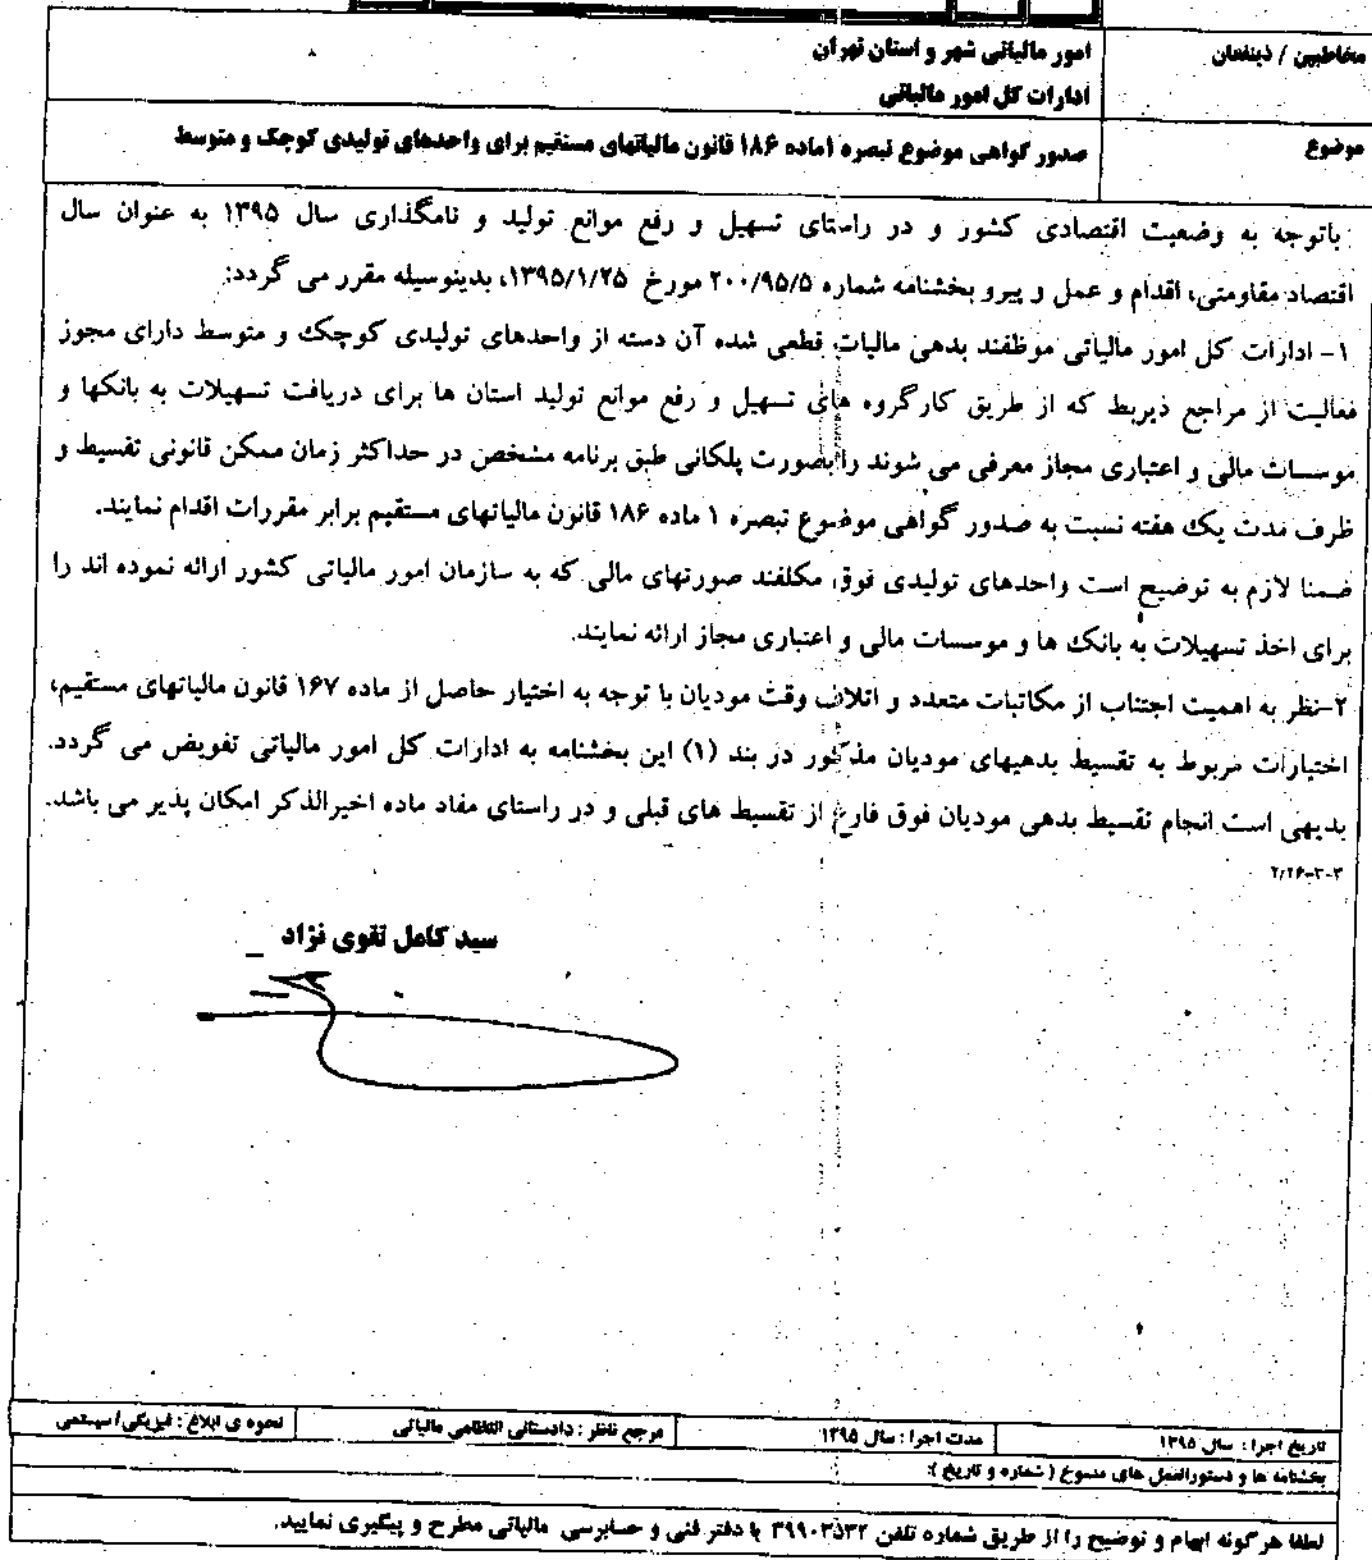 مخاطبین / ذینفعان
امور مالیاتی شهر و استان تهران
ادارات کل امور مالیاتی
موضوع
صدور گواهی موضوع تبصره ۱ماده ۱۸۶ قانون مالیاتهای مستقیم برای واحدهای تولیدی کوچک و متوسط
باتوجه به وضعیت اقتصادی کشور و در راستای تسهیل و رفع موانع تولید و نامگذاری سال ۱۳۹۵ به عنوان سال
اقتصاد مقاومتی، اقدام و عمل و پیرو بخشنامه شماره ۲۰۰/۹۵/۵ مورخ ۱۳۹۵/۱/۲۵، بدینوسیله مقرر می گردد:
۱- ادارات کل امور مالیاتی موظفند بدهی مالیات قطعی شده آن دسته از واحدهای تولیدی کوچک و متوسط دارای مجوز
فعالیت از مراجع ذیربط که از طریق کارگروه های تسهیل و رفع موانع تولید استان ها برای دریافت تسهیلات به بانکها و
موسسات مالی و اعتباری مجاز معرفی می شوند را بصورت پلکانی طبق برنامه مشخص در حداکثر زمان ممکن قانونی تقسیط و
ظرف مدت یک هفته نسبت به صدور گواهی موضوع تبصره ۱ ماده ۱۸۶ قانون مالیاتهای مستقیم برابر مقررات اقدام نمایند.
ضمنا لازم به توضیح است واحدهای تولیدی فوق مکلفند صورتهای مالی که به سازمان امور مالیاتی کشور ارائه نموده اند را
برای اخذ تسهیلات به بانک ها و موسسات مالی و اعتباری مجاز ارائه نمایند.
۲-نظر به اهمیت اجتناب از مکاتبات متعدد و اتلاف وقت مودیان با توجه به اختیار حاصل از ماده ۱۶۷ قانون مالیاتهای مستقیم،
اختیارات مربوط به تقسیط بدهیهای مودیان مذکور در بند (۱) این بخشنامه به ادارات کل امور مالیاتی تفویض می گردد.
بدیهی است انجام تقسیط بدهی مودیان فوق فارغ از تقسیط های قبلی و در راستای مفاد ماده اخیرالذکر امکان پذیر می باشد.
۲/۲۶-۳-۳
سید کامل تقوی نژاد
تاریخ اجرا : سال ۱۳۹۵
مدت اجرا : سال ۱۳۹۵
مرجع ناظر : دادستانی انتظامی مالیاتی
نحوه ی ابلاغ : فیزیکی/ سیستمی
بخشنامه ها و دستورالعمل های منسوخ ( شماره و تاریخ ):
لطفا هر گونه ابهام و توضیح را از طریق شماره تلفن ۳۹۹۰۳۵۳۲ با دفتر فنی و حسابرسی مالیاتی مطرح و پیگیری نمایید.